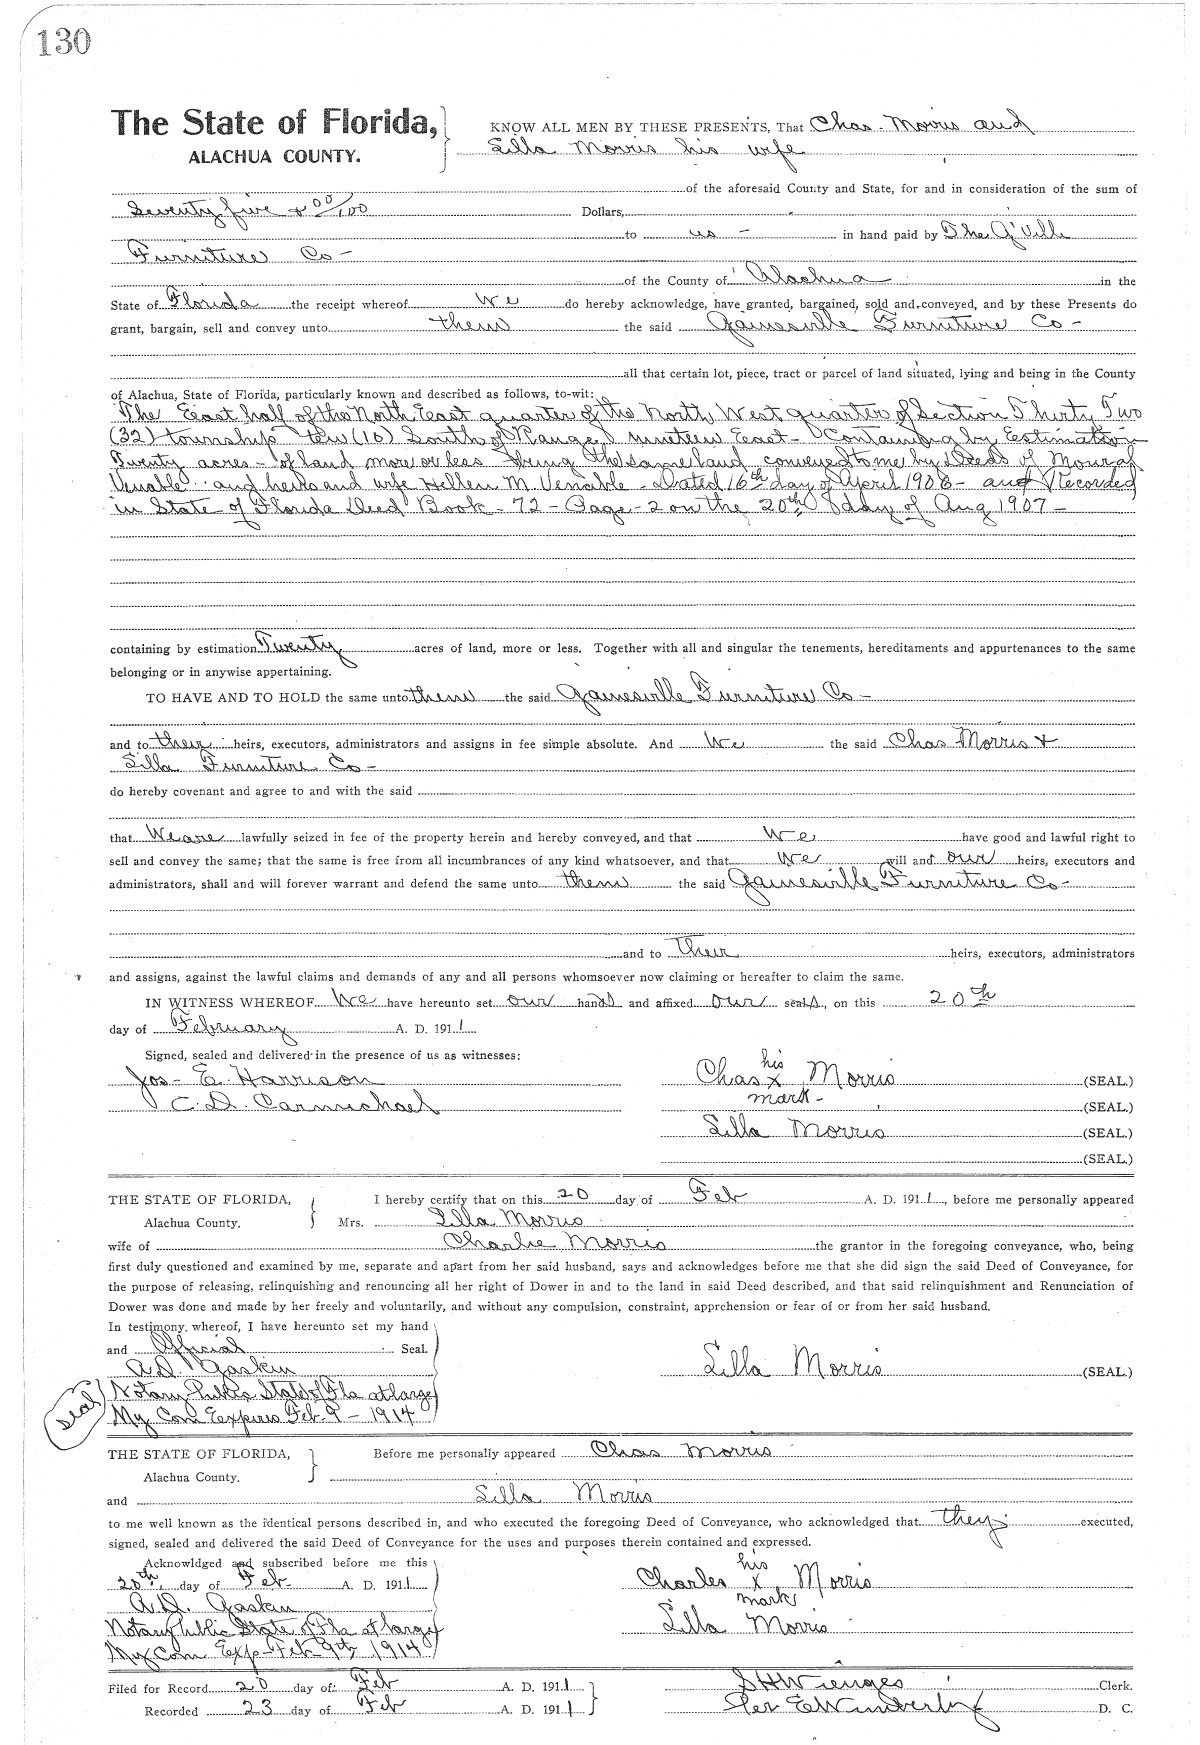 130
The State of Florida, KNOW ALL MEN BY THESE PRESENTS, That Chas. Morris and
ALACHUA COUNTY. Lilla Morris his wife
of the aforesaid County and State, for and in consideration of the sum of
Seventy five & 00/100 Dollars,
to us - in hand paid by The G'ville
Furniture Co -
of the County of Alachua in the
State of Florida the receipt whereof We do hereby acknowledge, have granted, bargained, sold and conveyed, and by these Presents do
grant, bargain, sell and convey unto them the said Gainesville Furniture Co -
all that certain lot, piece, tract or parcel of land situated, lying and being in the County
of Alachua, State of Florida, particularly known and described as follows, to-wit:
The East half of the North East quarter of the North West quarter of Section Thirty Two
(32) township ten (10) South of Range nineteen East - Containing by Estimation
Twenty acres - of land more or less being the same land conveyed to me by Deeds of
Venable and wife Hellen M. Venable - Dated 16th day of April 1906 - and Recorded
in State of Florida Deed Book - 72 - Page - 2 on the 20th day of Aug 1907 -
containing by estimation Twenty acres of land, more or less. Together with all and singular the tenements, hereditaments and appurtenances to the same
belonging or in anywise appertaining.
TO HAVE AND TO HOLD the same unto them the said Gainesville Furniture Co -
and to their heirs, executors, administrators and assigns in fee simple absolute. And We the said Chas Morris &
Lilla Furniture Co -
do hereby covenant and agree to and with the said
that We are lawfully seized in fee of the property herein and hereby conveyed, and that We have good and lawful right to
sell and convey the same; that the same is free from all incumbrances of any kind whatsoever, and that We will and our heirs, executors and
administrators, shall and will forever warrant and defend the same unto them the said Gainesville Furniture Co -
and to Their heirs, executors, administrators
and assigns, against the lawful claims and demands of any and all persons whomsoever now claiming or hereafter to claim the same.
IN WITNESS WHEREOF We have hereunto set our hands and affixed our seals, on this 20th
day of February A. D. 1911
Signed, sealed and delivered in the presence of us as witnesses:
his
Jos - E. Harrison Chas x Morris (SEAL.)
C. D. Carmichael mark - (SEAL.)
Lilla Morris (SEAL.)
(SEAL.)
THE STATE OF FLORIDA, I hereby certify that on this 20 day of Feb A. D. 1911, before me personally appeared
Alachua County. Mrs. Lilla Morris
wife of Charlie Morris the grantor in the foregoing conveyance, who, being
first duly questioned and examined by me, separate and apart from her said husband, says and acknowledges before me that she did sign the said Deed of Conveyance, for
the purpose of releasing, relinquishing and renouncing all her right of Dower in and to the land in said Deed described, and that said relinquishment and Renunciation of
Dower was done and made by her freely and voluntarily, and without any compulsion, constraint, apprehension or fear of or from her said husband.
In testimony whereof, I have hereunto set my hand
and Official Seal.
A.D. Gaskin Lilla Morris (SEAL.)
Notary Public State of Fla at large
seal
My Com Expires Feb. 9 - 1914
THE STATE OF FLORIDA, Before me personally appeared Chas Morris
Alachua County.
and Lilla Morris
to me well known as the identical persons described in, and who executed the foregoing Deed of Conveyance, who acknowledged that they executed,
signed, sealed and delivered the said Deed of Conveyance for the uses and purposes therein contained and expressed.
Acknowldged and subscribed before me this his
20th day of Feb - A. D. 1911 Charles x Morris
A.D. Gaskin mark
Notary Public State of Fla at large Lilla Morris
My Com Exp - Feb 9th, 1914
Filed for Record 20 day of Feb A. D. 1911 S H Wienges Clerk.
Recorded 23 day of Feb A. D. 1911 Per E Wimberly D. C.